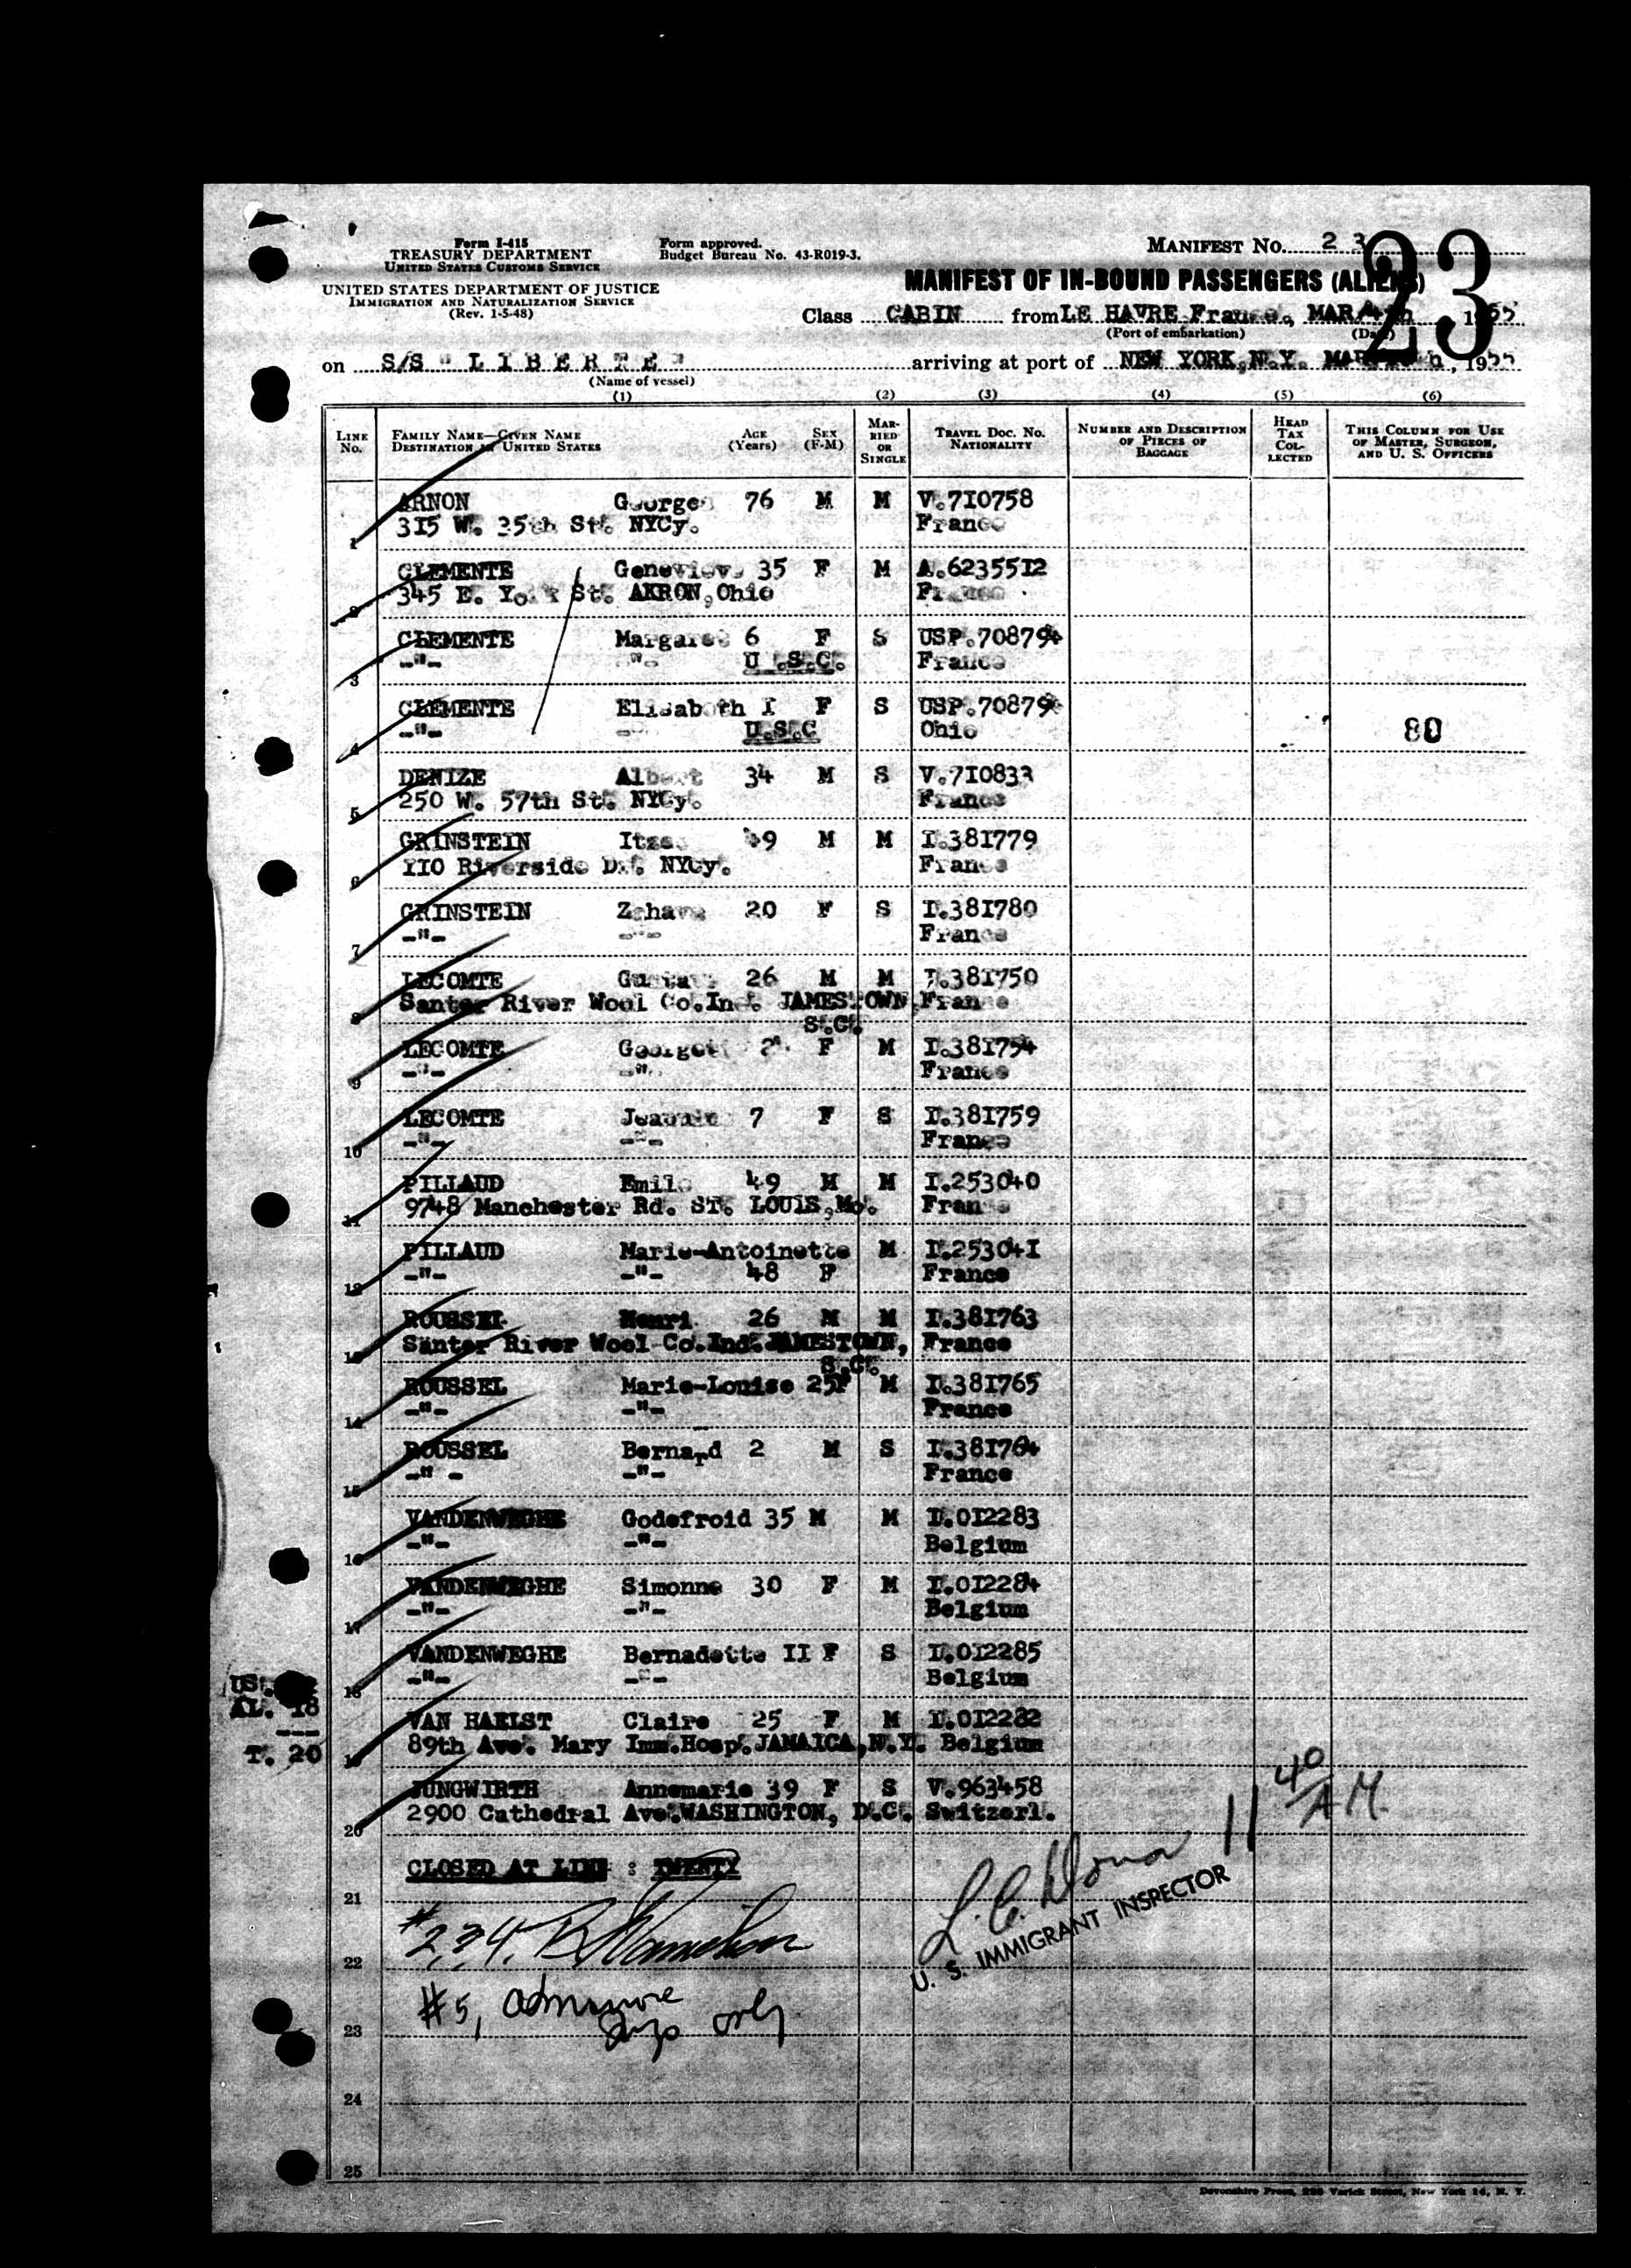 Form I-415
TREASURY DEPARTMENT
UNITED STATES CUSTOMS SERVICE
UNITED STATES DEPARTMENT OF JUSTICE
IMMIGRATION AND NATURALIZATION SERVICE
(Rev. 1-5-48)
Form approved.
Budget Bureau No. 43-R019-3.
MANIFEST NO. 23
23
MANIFEST OF IN-BOUND PASSENGERS (ALIENS)
Class CABIN from LE HAVRE France, MAR 1955
(Port of embarkation) (Date)
on S/S " LIBERTE " arriving at port of NEW YORK,N.Y. 1955
(Name of vessel)
(1) (2) (3) (4) (5) (6)
LINE No. FAMILY NAME—GIVEN NAME DESTINATION IN UNITED STATES AGE (Years) SEX (F-M) MARRIED OR SINGLE TRAVEL DOC. NO. NATIONALITY NUMBER AND DESCRIPTION OF PIECES OF BAGGAGE HEAD TAX COLLECTED THIS COLUMN FOR USE OF MASTER, SURGEON, AND U. S. OFFICERS
ARNON Georges 76 M M V.710758
1 315 W. 35th St. NYCy. France
CLEMENTE Genevieve 35 F M A.6235512
2 345 E. York St. AKRON,Ohio France
CLEMENTE Margaret 6 F S USP.70879
3 -"- -"- U.S.C. France
CLEMENTE Elisabeth I F S USP.70879
4 -"- -"- U.S.C Ohio 80
DENIZE Albert 34 M S V.710833
5 250 W. 57th St. NYCy. France
GRINSTEIN 49 M M I.381779
6 110 Riverside Dr. NYCy. France
GRINSTEIN Zehava 20 F S I.381780
7 -"- -"- France
LECOMTE Gustave 26 M M I.381750
8 Santer River Wool Co.Ind. JAMESTOWN, France
S.C.
LECOMTE Georgette F M I.381754
9 -"- -"- France
LECOMTE 7 F S I.381759
10 -"- -"- France
PILLAUD Emile 49 M M I.253040
11 9748 Manchester Rd. ST. LOUIS,Mo. France
PILLAUD Marie-Antoinette M I.253041
12 -"- -"- 48 F France
ROUSSEL Henri 26 M M I.381763
13 Santer River Wool Co.Ind. JAMESTOWN, France
S.C.
ROUSSEL Marie-Louise 25F M I.381765
14 -"- -"- France
ROUSSEL Bernard 2 M S I.381764
15 -" - -"- France
VANDENWEGHE Godefroid 35 M M I.012283
16 -"- -"- Belgium
VANDENWEGHE Simonne 30 F M I.012284
17 -"- -"- Belgium
VANDENWEGHE Bernadette II F S I.012285
18 -"- -"- Belgium
US.
AL. 18
---
T. 20
VAN HAELST Claire 25 F M I.012282
19 89th Ave. Mary Imm.Hosp.JAMAICA,N.Y. Belgium
JUNGWIRTH Annemarie 39 F S V.963458
20 2900 Cathedral Ave.WASHINGTON, D.C. Switzerl.
11 40 AM.
CLOSED AT LINE : TWENTY
21
U. S. IMMIGRANT INSPECTOR
#2,3,4,
22
#5,
only
23
24
25
Devonshire Press, 225 Varick Street, New York 14, N. Y.